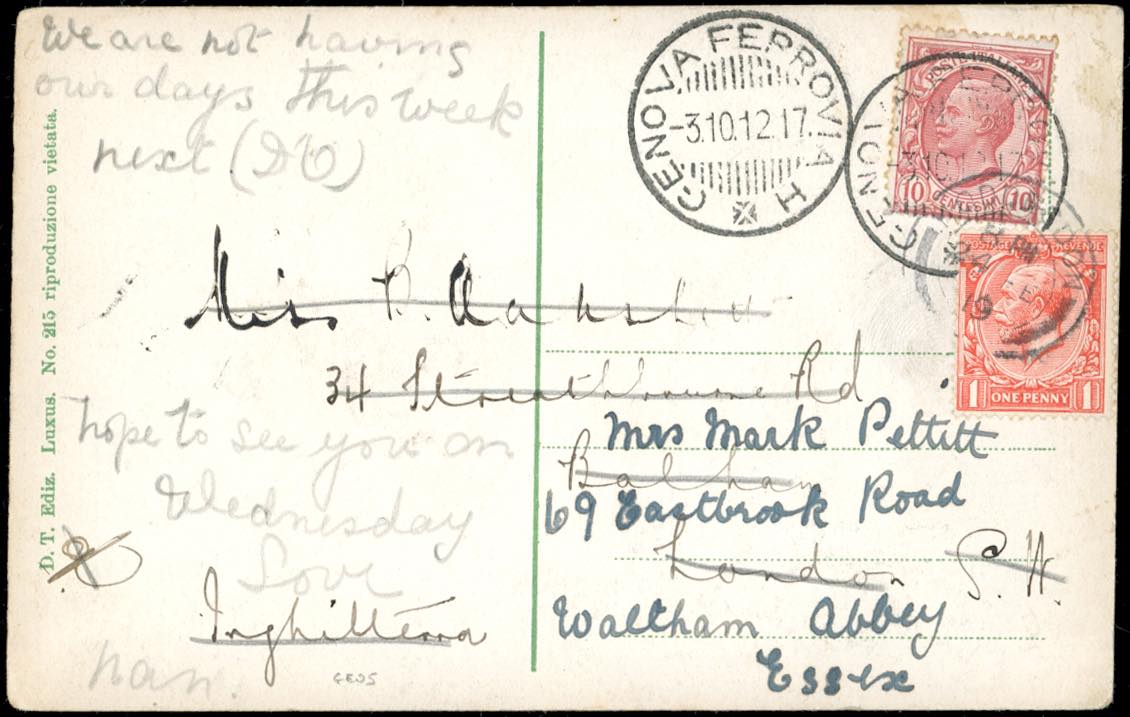 We are not having
our days this week
next (DV)
hope to see you on
Wednesday
Love
Nan.
D. T. Ediz. Luxus. No. 215 riproduzione vietata.
Miss
34 Streathbourne Rd
Balham
London S. W.
Inghilterra
Mrs Mark Pettitt
69 Eastbrook Road
Waltham Abbey
Essex
GENOVA FERROVIA H
-3.10.12.17.
GENOVA
-3.10.12.17
POSTE ITALIANE
10 CENTESIMI 10
POSTAGE REVENUE
1 ONE PENNY 1
LONDON
8 PM
24
19